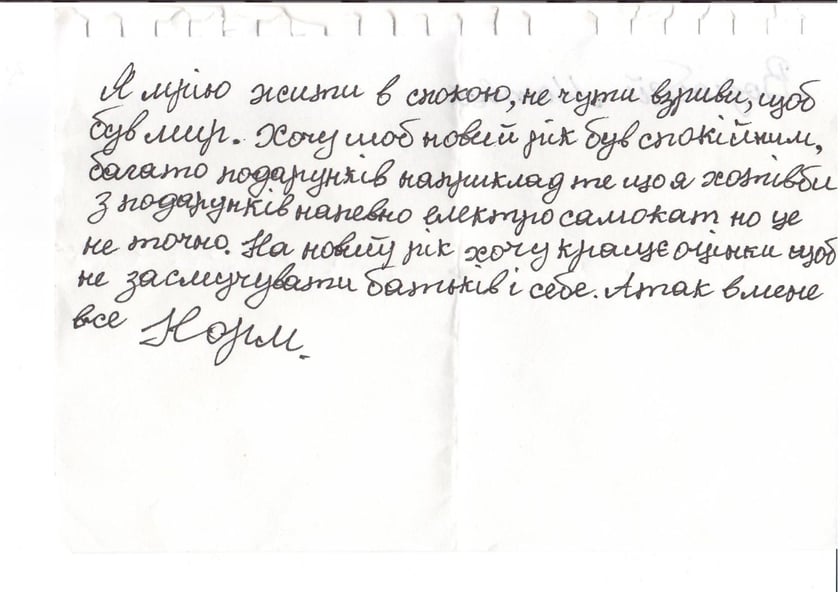 Я мрію жити в спокою, не чути взриви, щоб
був мир. Хочу шоб новий рік був спокійним,
багато подарунків наприклад те що я хотів би
з подарунків напевно електро самокат но це
не точно. На новий рік хочу кращє оцінки щоб
не засмучувати батьків і себе. А так в мене
все Норм.